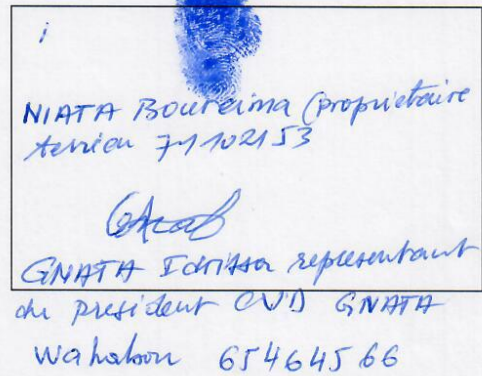 NIATA Boureima (proprietaire
terrien 71102153
GNATA Idrissa representant
du president CVD GNATA
Wahabou 65464566